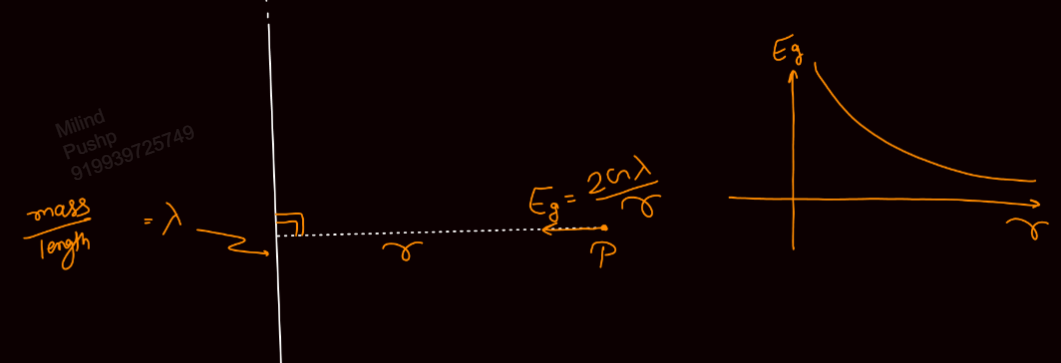 Milind
Pushp
919939725749
mass
length
= λ
r
E_g = 2Gλ
r
P
E_g
r